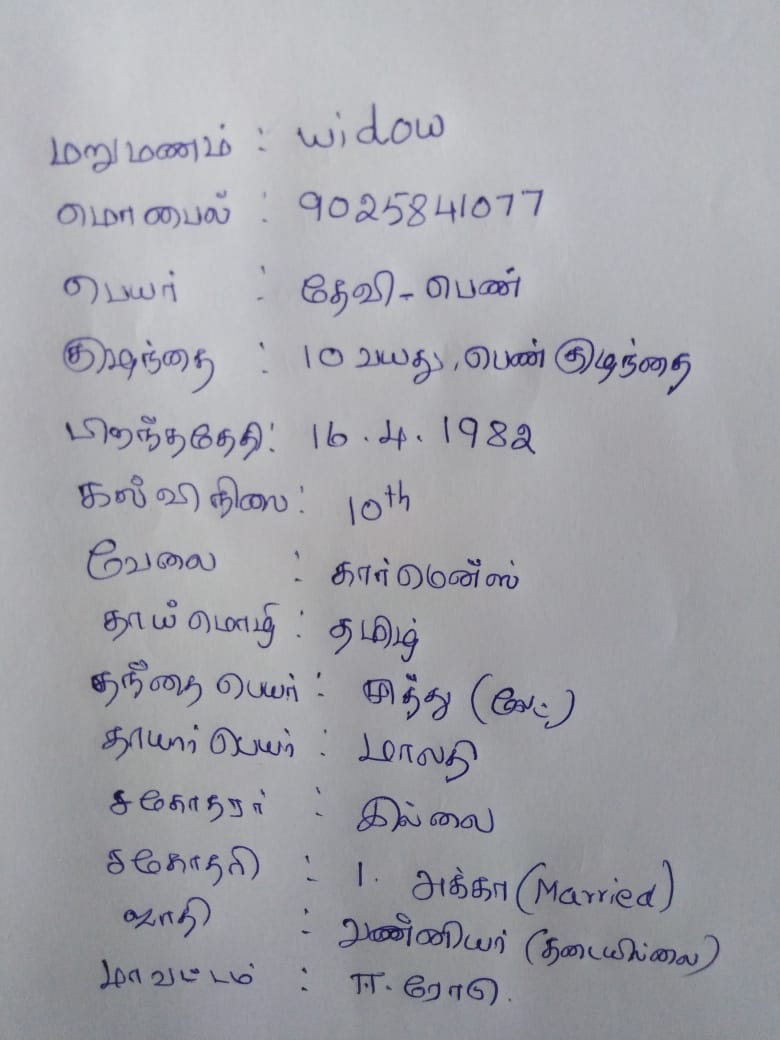 மறுமணம் : widow
மொபைல் : 9025841077
பெயர் : தேவி - பெண்
குழந்தை : 10 வயது, பெண் குழந்தை
பிறந்ததேதி : 16.4.1982
கல்வி நிலை : 10th
வேலை : கார்மெண்ஸ்
தாய் மொழி : தமிழ்
தந்தை பெயர் : முத்து (லேட்)
தாயார் பெயர் : மாலதி
சகோதரர் : இல்லை
சகோதரி : 1. அக்கா (Married)
ஜாதி : வண்ணியர் (தடையில்லை)
மாவட்டம் : ஈ.ரோடு.